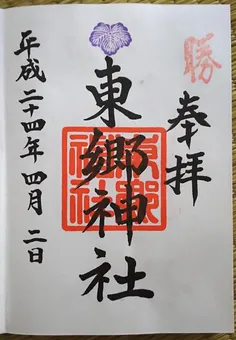 勝
奉拝
東郷神社
東郷神社
平成二十四年四月二日